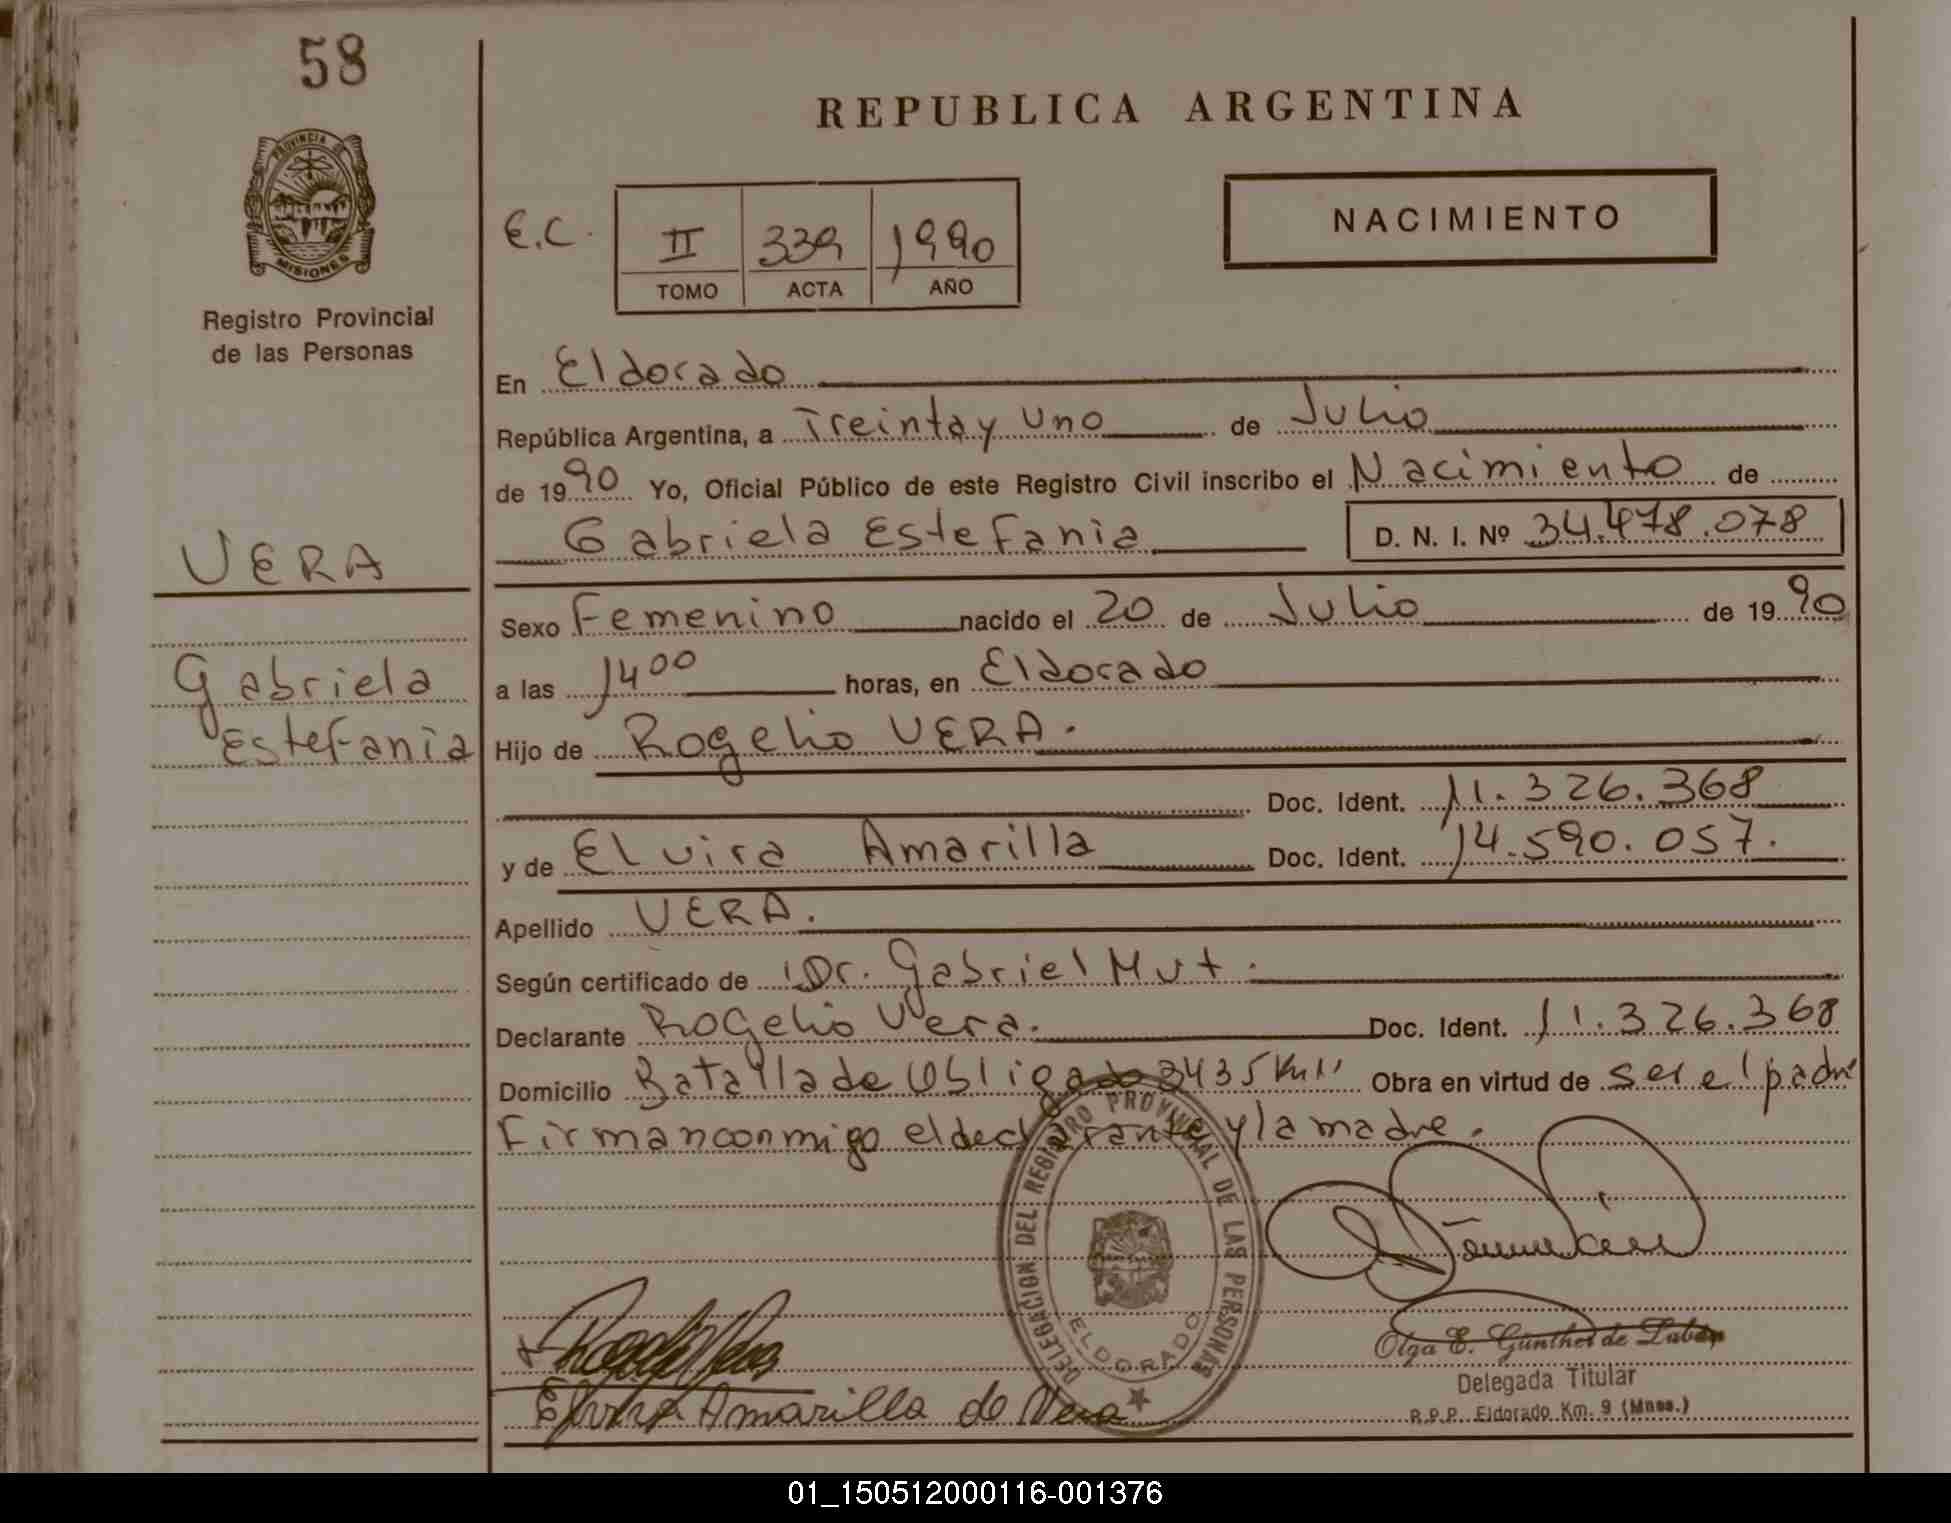 58
PROVINCIA DE
MISIONES
Registro Provincial
de las Personas
VERA
Gabriela
Estefania
REPUBLICA ARGENTINA
E.C.
II 339 1990
TOMO ACTA AÑO
NACIMIENTO
En Eldorado
República Argentina, a Treinta y Uno de Julio
de 1990 Yo, Oficial Público de este Registro Civil inscribo el Nacimiento de
Gabriela Estefania D. N. I. Nº 34.478.078
Sexo Femenino nacido el 20 de Julio de 1990
a las 1400 horas, en Eldorado
Hijo de Rogelio VERA.
Doc. Ident. 11.326.368
y de Elvira Amarilla Doc. Ident. 14.590.057.
Apellido VERA.
Según certificado de Dr. Gabriel Mut.
Declarante Rogelio Vera. Doc. Ident. 11.326.368
Domicilio Batalla de Obligado 3435 Km11 Obra en virtud de ser el padre
Firman conmigo el declarante y la madre.
DELEGACION DEL REGISTRO PROVINCIAL DE LAS PERSONAS
ELDORADO
Elvira Amarilla de Vera
Olga E. Günther de Laban
Delegada Titular
R.P.P. Eldorado Km. 9 (Mnes.)
01_150512000116-001376